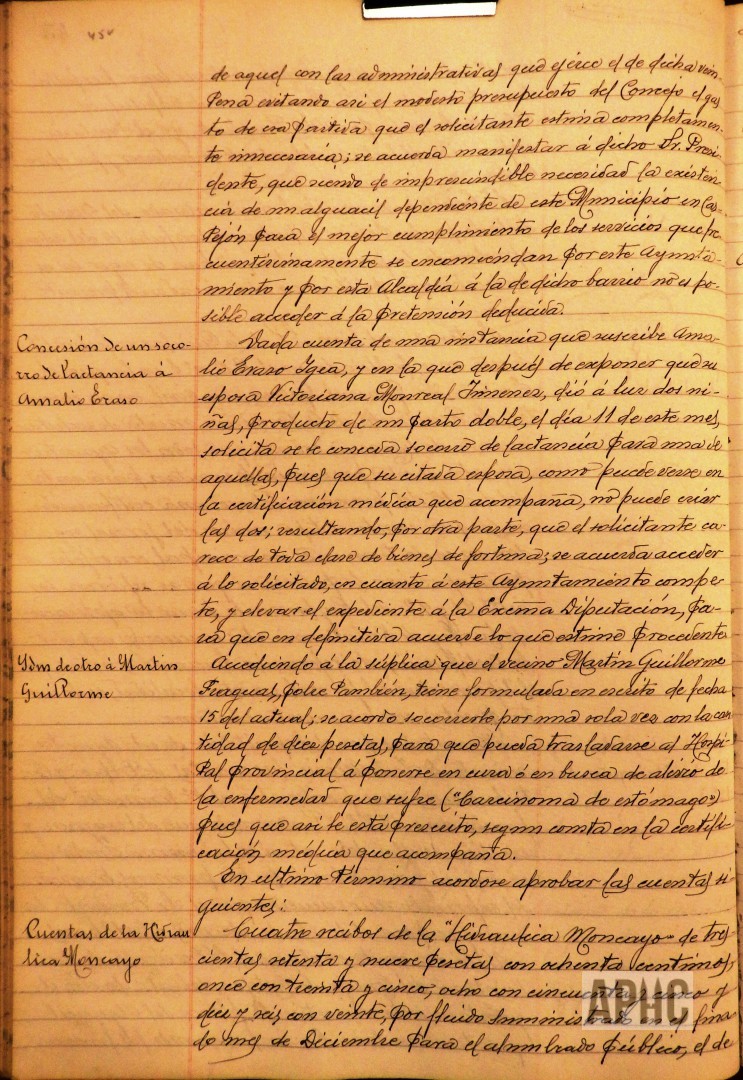 454
de aquel con las administrativas que ejerce el de dicha vein-
tena evitando asi el modesto presupuesto del Concejo el gas-
to de esa partida que el solicitante estima completamen-
te innecesaria; se acuerda manifestar á dicho Sr. Presi-
dente, que siendo de imprescindible necesidad la existen-
cia de un alguacil dependiente de este Municipio en Cas-
tejón para el mejor cumplimiento de los servicios que fre-
cuentísimamente se encomiendan por este Ayunta-
miento y por esta Alcaldía á la de dicho barrio no es po-
sible acceder á la pretensión deducida.
Concesión de un soco-
rro de lactancia á
Amalio Eraso
Dada cuenta de una instancia que suscribe Ama-
lio Eraso Igea, y en la que después de exponer que su
esposa Victoriana Monreal Jimenez, dió á luz dos ni-
ñas, producto de un parto doble, el día 11 de este mes,
solicita se le conceda socorro de lactancia para una de
aquellas, pues que su citada esposa, como puede verse en
la certificación médica que acompaña, no puede criar
las dos; resultando, por otra parte, que el solicitante ca-
rece de toda clase de bienes de fortuna; se acuerda acceder
á lo solicitado, en cuanto á este Ayuntamiento compe-
te, y elevar el expediente á la Excma Diputación, pa-
ra que en definitiva acuerde lo que estime procedente
Idm de otro á Martin
Guillorme
Accediendo á la súplica que el vecino Martín Guillorme
Fraguas, pobre también, tiene formulada en escrito de fecha
15 del actual; se acordo socorrerle por una sola vez con la can-
tidad de diez pesetas, para que pueda trasladarse al Hospi-
tal provincial á ponerse en cura ó en busca de alivio de
la enfermedad que sufre ("Carcinoma de estómago")
pues que asi le está prescrito, segun consta en la certifi-
cación médica que acompaña.
En ultimo término acordose aprobar las cuentas si-
guientes:
Cuentas de la Hidrau
lica Moncayo
Cuatro recibos de la "Hidraulica Moncayo" de tres-
cientas setenta y nueve pesetas con ochenta centimos,
once con treinta y cinco; ocho con cincuenta y cinco y
diez y seis con veinte, por fluido suministrado en el fina-
do mes de Diciembre para el alumbrado público, el de
APHC